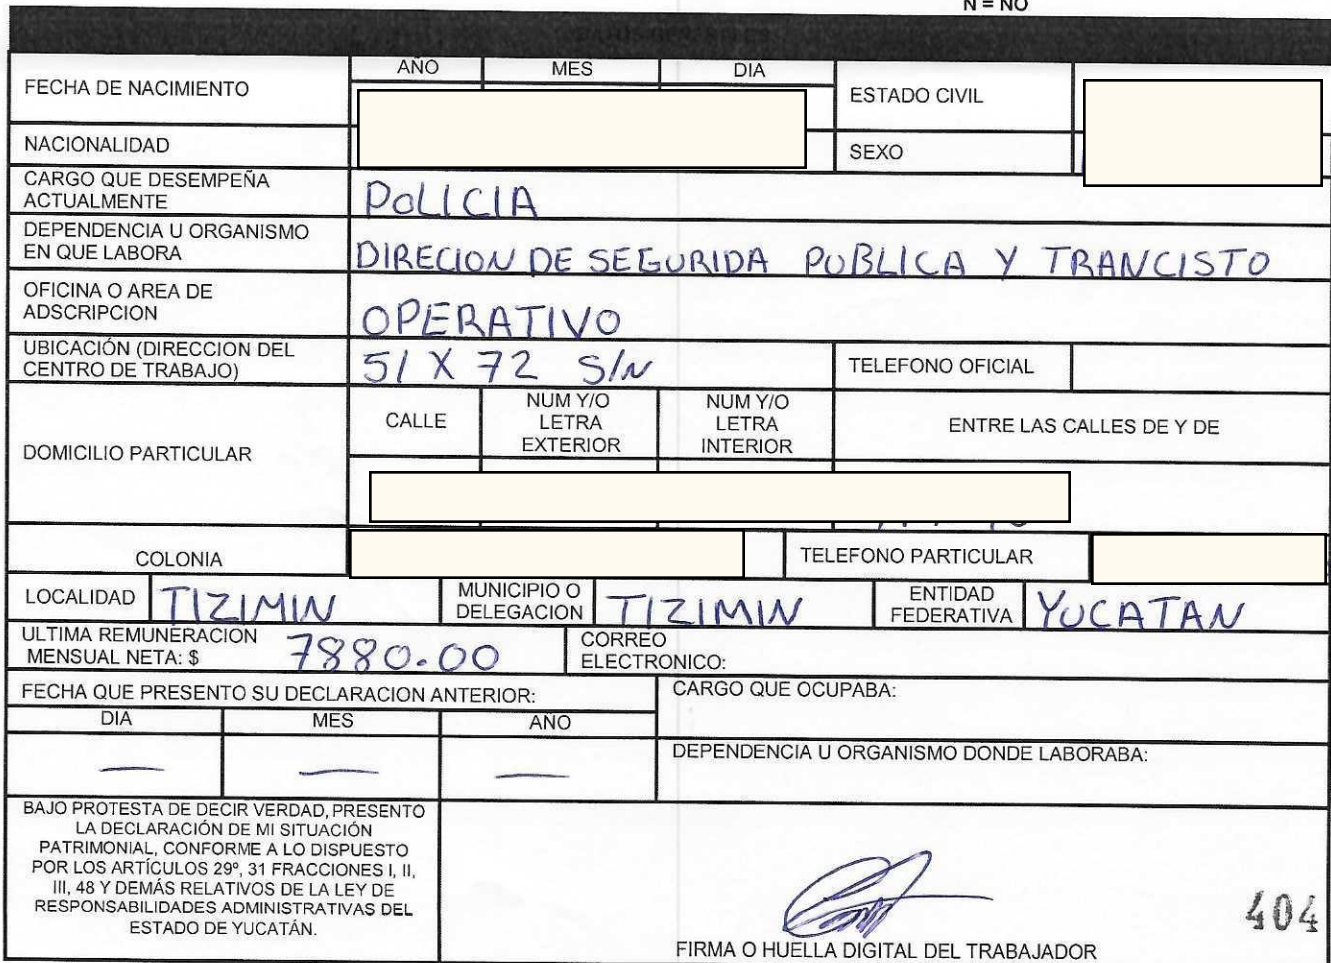 N = NO
DATOS GENERALES
FECHA DE NACIMIENTO
AÑO MES DIA
ESTADO CIVIL
NACIONALIDAD
SEXO
CARGO QUE DESEMPEÑA
ACTUALMENTE
POLICIA
DEPENDENCIA U ORGANISMO
EN QUE LABORA
DIRECION DE SEGURIDA PUBLICA Y TRANCISTO
OFICINA O AREA DE
ADSCRIPCION
OPERATIVO
UBICACIÓN (DIRECCION DEL
CENTRO DE TRABAJO)
51 X 72 S/N
TELEFONO OFICIAL
DOMICILIO PARTICULAR
CALLE
NUM Y/O
LETRA
EXTERIOR
NUM Y/O
LETRA
INTERIOR
ENTRE LAS CALLES DE Y DE
COLONIA
TELEFONO PARTICULAR
LOCALIDAD TIZIMIN
MUNICIPIO O
DELEGACION
TIZIMIN
ENTIDAD
FEDERATIVA
YUCATAN
ULTIMA REMUNERACION
MENSUAL NETA: $ 7880.00
CORREO
ELECTRONICO:
FECHA QUE PRESENTO SU DECLARACION ANTERIOR:
DIA MES AÑO
— — —
CARGO QUE OCUPABA:
DEPENDENCIA U ORGANISMO DONDE LABORABA:
BAJO PROTESTA DE DECIR VERDAD, PRESENTO
LA DECLARACIÓN DE MI SITUACIÓN
PATRIMONIAL, CONFORME A LO DISPUESTO
POR LOS ARTÍCULOS 29º, 31 FRACCIONES I, II,
III, 48 Y DEMÁS RELATIVOS DE LA LEY DE
RESPONSABILIDADES ADMINISTRATIVAS DEL
ESTADO DE YUCATÁN.
FIRMA O HUELLA DIGITAL DEL TRABAJADOR
404